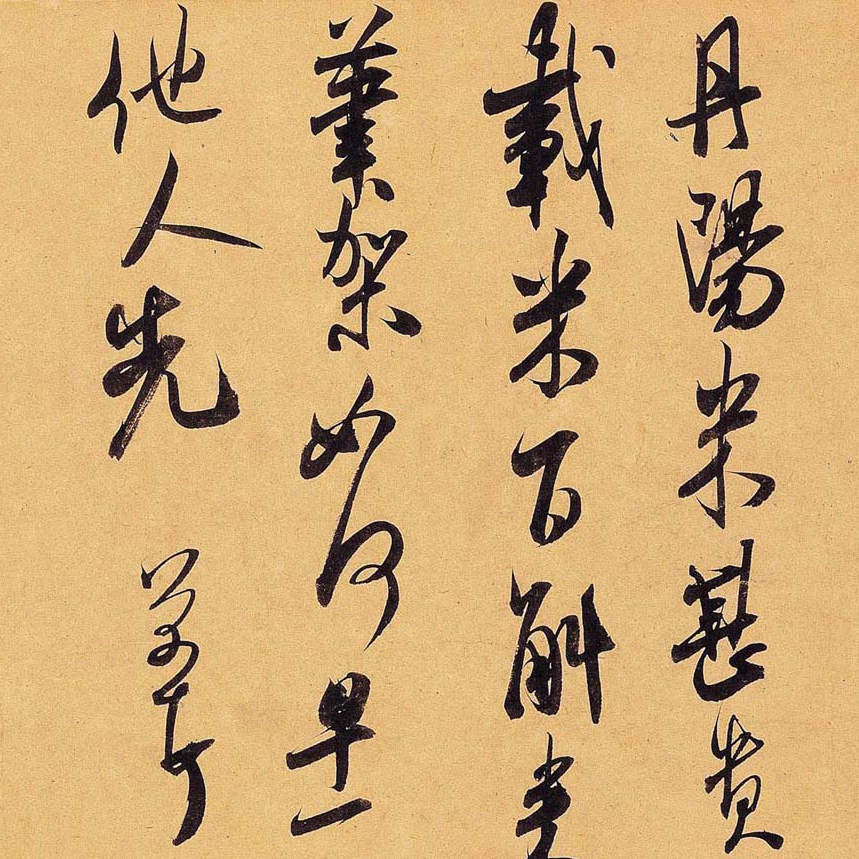 丹陽米甚貴
載米百斛來
筆架如何早一
他人先